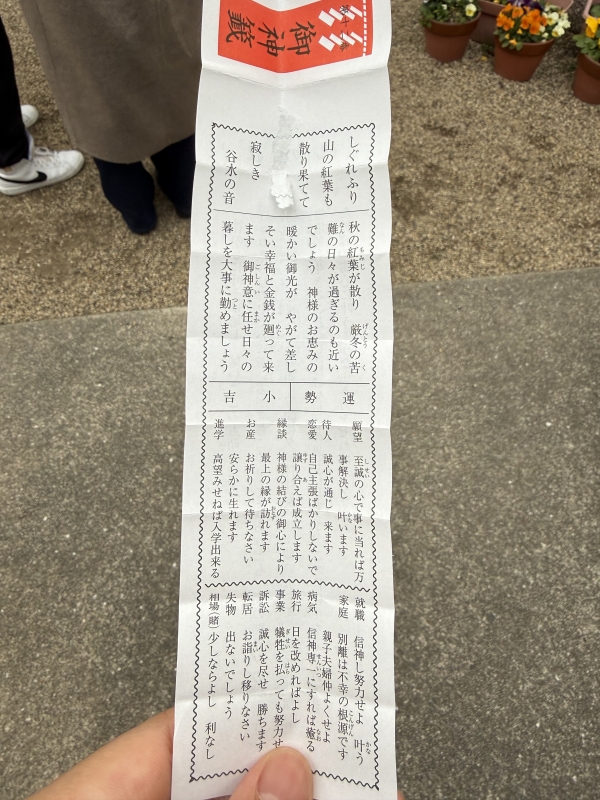 御神籤
しぐれふり
山の紅葉も
散り果てて
寂しき
谷水の音
秋の紅葉が散り 厳冬の苦
難の日々が過ぎるのも近い
でしょう 神様のお恵みの
暖かい御光が やがて差し
そい幸福と金銭が廻って来
ます 御神意に任せ日々の
暮しを大事に勤めましょう
運勢 小吉
願望 至誠の心で事に当れば万
事解決し 叶います
待人 誠心が通じ 来ます
恋愛 自己主張ばかりしないで
譲り合えば成立します
縁談 神様の結びの御心により
最上の縁が訪れます
お産 お祈りして待ちなさい
安らかに生れます
進学 高望みせねば入学出来る
就職 信神し努力せよ 叶う
家庭 別離は不幸の根源です
親子夫婦仲よくせよ
病気 信神専一にすれば癒る
旅行 日を改めればよし
事業 犠牲を払っても努力せ
訴訟 誠心を尽せ 勝ちます
転居 お詣りし移りなさい
失物 出ないでしょう
相場(賭) 少しならよし 利なし